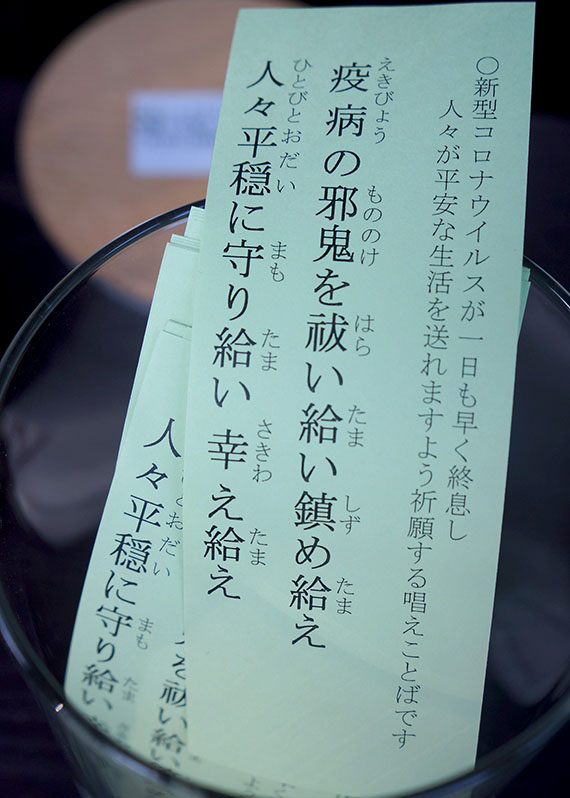 〇新型コロナウイルスが一日も早く終息し
人々が平安な生活を送れますよう祈願する唱えことばです
えきびょう もののけ はら たま しず たま
疫病の邪鬼を祓い給い鎮め給え
ひとびとおだい まも たま さきわ たま
人々平穏に守り給い 幸え給え
を祓い給い
とおだい まも たま
人々平穏に守り給い